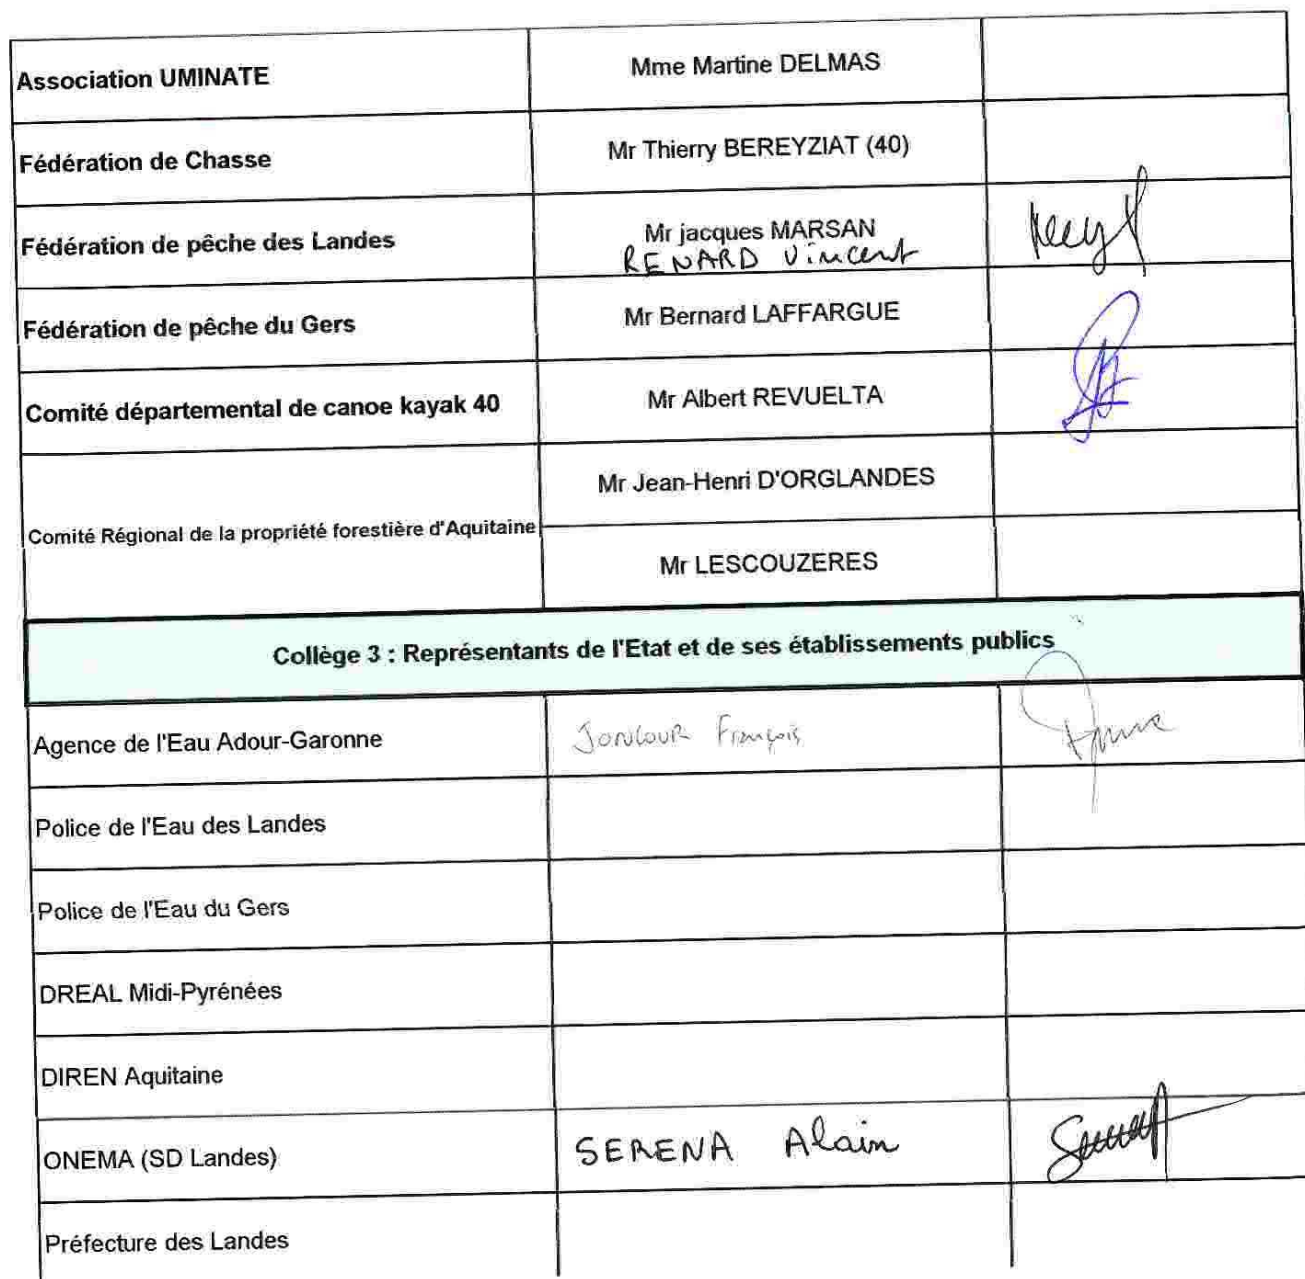 Association UMINATE
Mme Martine DELMAS
Fédération de Chasse
Mr Thierry BEREYZIAT (40)
Fédération de pêche des Landes
Mr jacques MARSAN
RENARD Vincent
Fédération de pêche du Gers
Mr Bernard LAFFARGUE
Comité départemental de canoe kayak 40
Mr Albert REVUELTA
Comité Régional de la propriété forestière d'Aquitaine
Mr Jean-Henri D'ORGLANDES
Mr LESCOUZERES
Collège 3 : Représentants de l'Etat et de ses établissements publics
Agence de l'Eau Adour-Garonne
JONCOUR François
Police de l'Eau des Landes
Police de l'Eau du Gers
DREAL Midi-Pyrénées
DIREN Aquitaine
ONEMA (SD Landes)
SERENA Alain
Préfecture des Landes